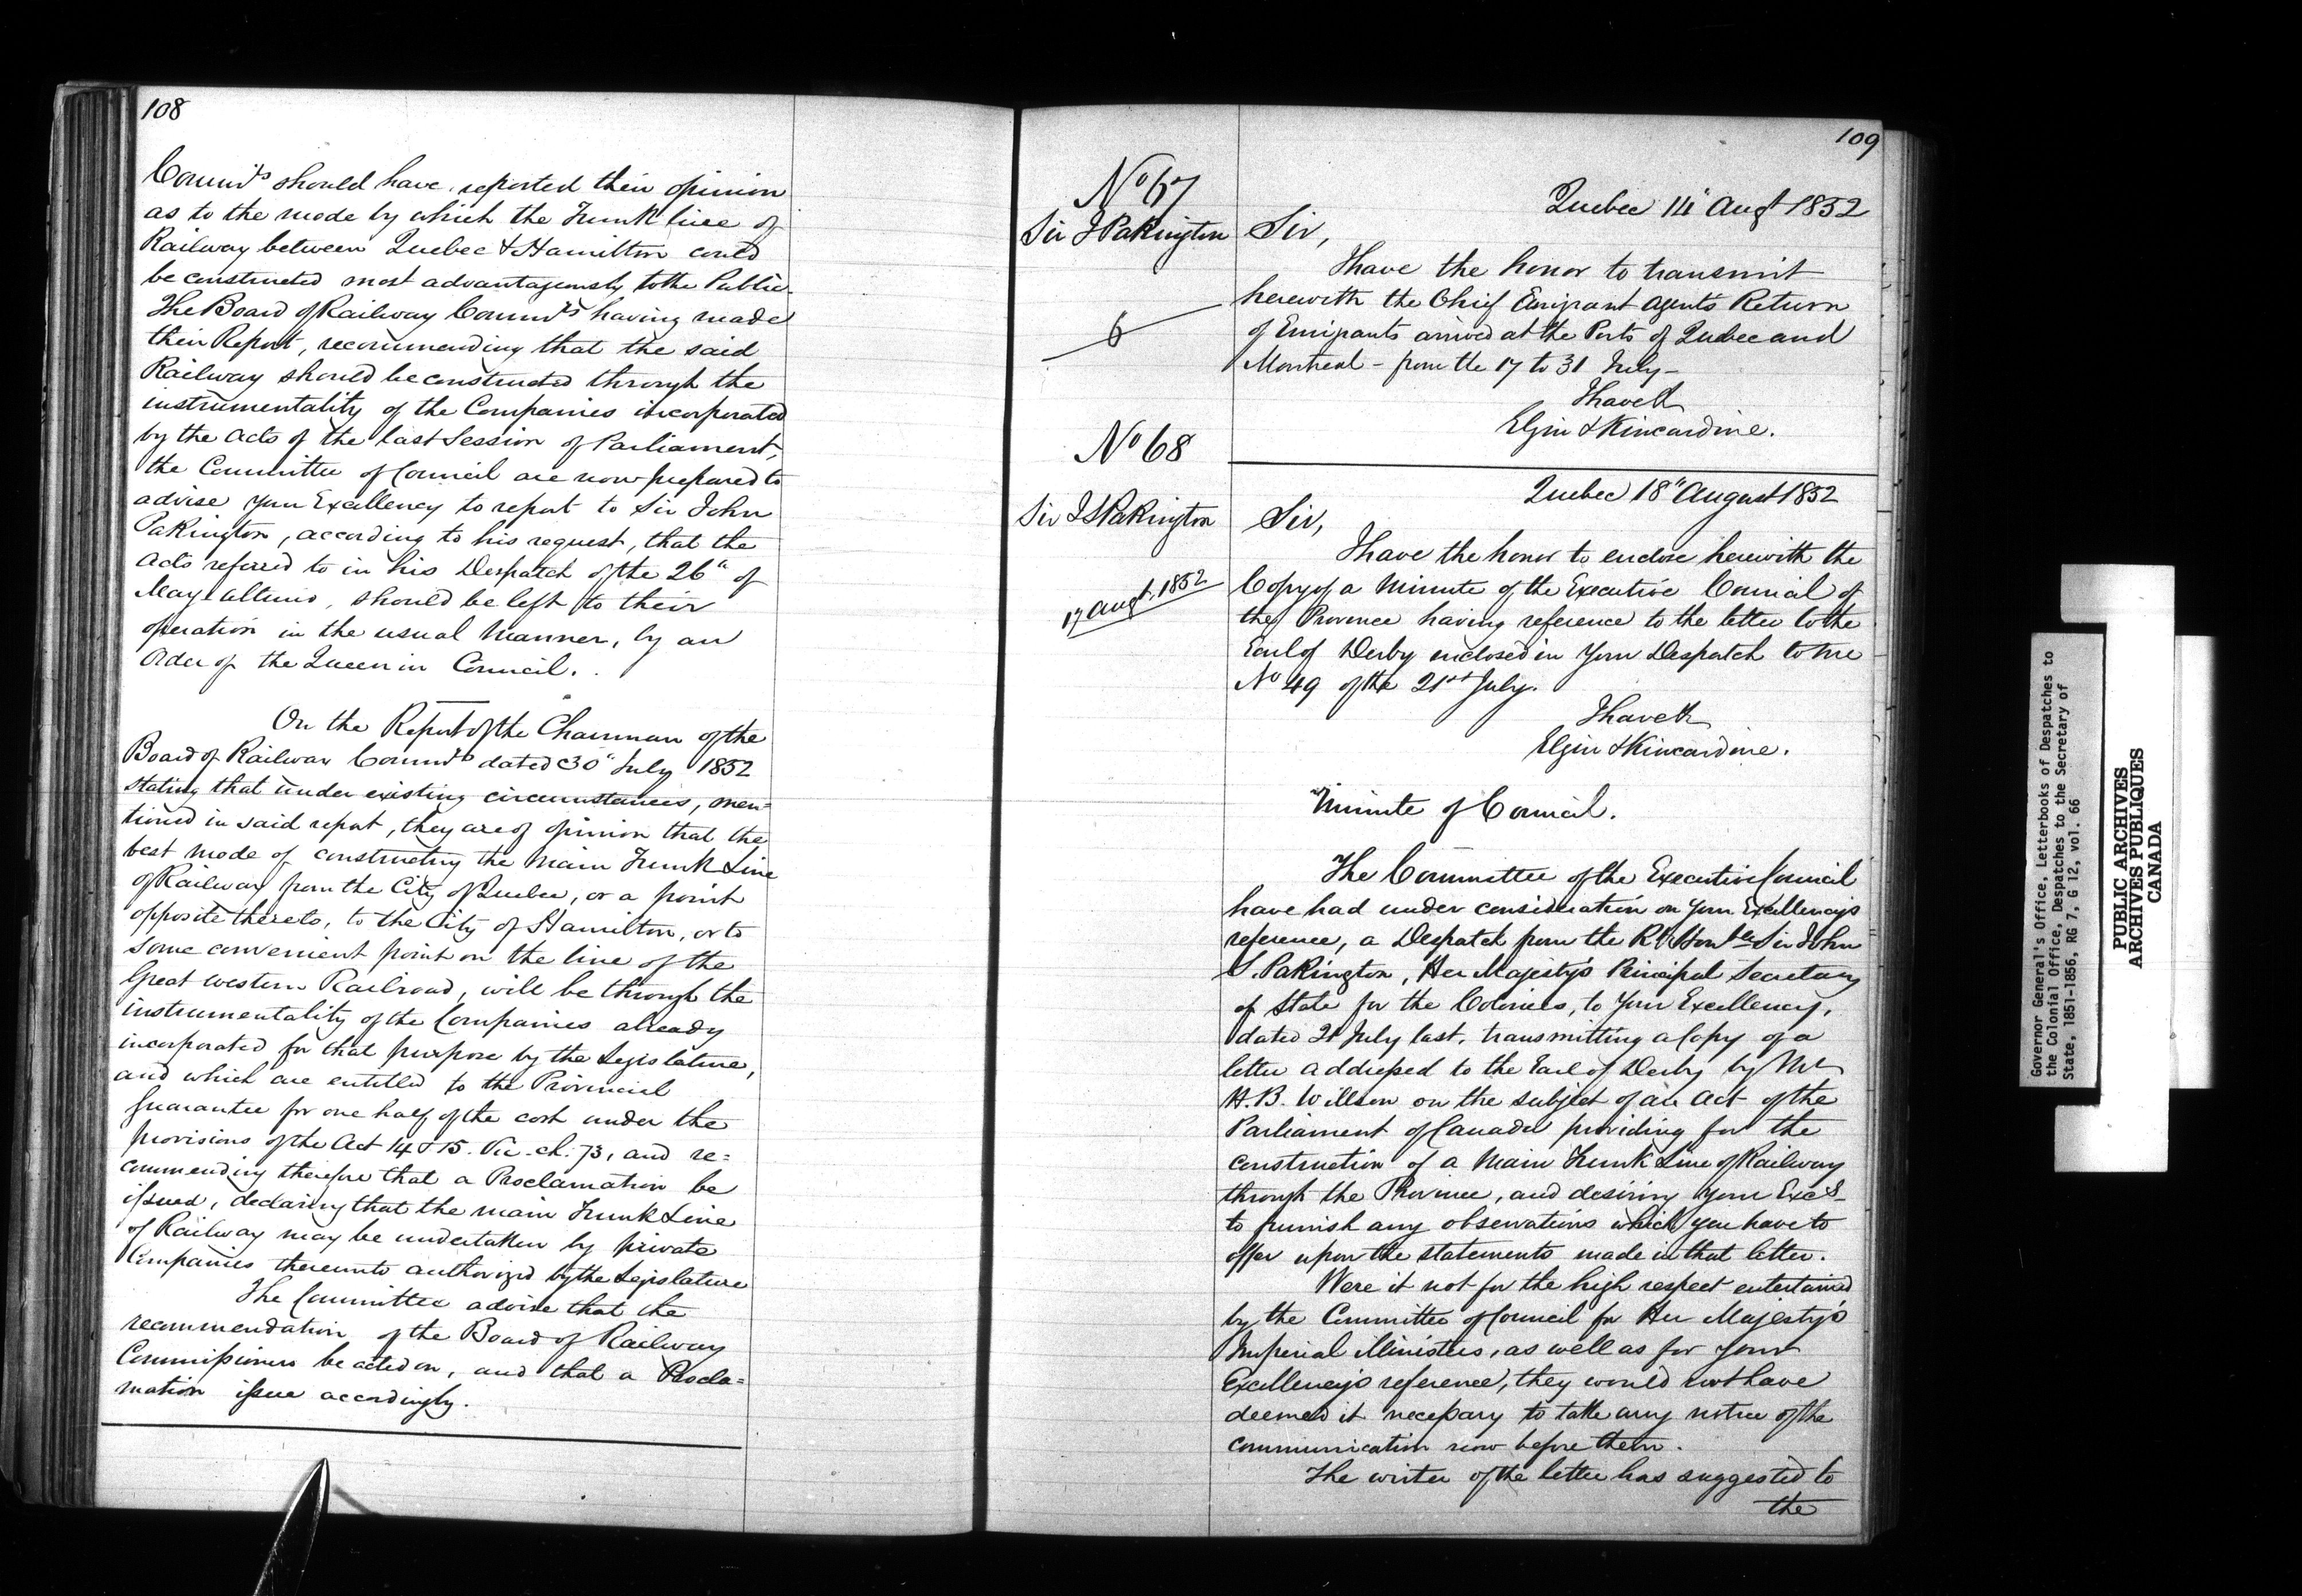 108
Comm'rs should have reported their opinion
as to the mode by which the Trunk line of
Railway between Quebec & Hamilton could
be constructed most advantageously to the Public.
The Board of Railway Comm'rs having made
their Report, recommending that the said
Railway should be constructed through the
instrumentality of the Companies incorporated
by the Acts of the last Session of Parliament,
the Committee of Council are now prepared to
advise Your Excellency to report to Sir John
Pakington, according to his request, that the
Acts referred to in his Despatch of the 26" of
May ultimo, should be left to their
operation in the usual manner, by an
Order of the Queen in Council.
On the Report of the Chairman of the
Board of Railway Comm'rs dated 30" July 1852
stating that under existing circumstances, men=
tioned in said report, they are of opinion that the
best mode of constructing the Main Trunk Line
of Railway from the City of Quebec, or a point
opposite thereto, to the City of Hamilton, or to
some convenient point on the line of the
Great Western Railroad, will be through the
instrumentality of the Companies already
incorporated for that purpose by the Legislature,
and which are entitled to the Provincial
Guarantee for one half of the cost under the
provisions of the Act 14 & 15. Vic. ch. 73, and re=
commending therefore that a Proclamation be
issued, declaring that the main Trunk Line
of Railway may be undertaken by private
Companies thereunto authorized by the Legislature
The Committee advise that the
recommendation of the Board of Railway
Commissioners be acted on, and that a Procla=
mation issue accordingly.
109
No 67
Sir J Pakington
6
Quebec 14" Augt 1852
Sir,
I have the honor to transmit
herewith the Chief Emigrant Agents Return
of Emigrants arrived at the Ports of Quebec and
Montreal - from the 17 to 31 July -
I have &
Elgin & Kincardine.
No 68
Sir J S Pakington
17 Augt. 1852
Quebec 18" August 1852
Sir,
I have the honor to enclose herewith the
Copy of a Minute of the Executive Council of
the Province having reference to the letter to the
Earl of Derby enclosed in Your Despatch to me
No 49 of the 21st July.
I have &
Elgin & Kincardine.
Minute of Council.
The Committee of the Executive Council
have had under consideration on Your Excellency's
reference, a Despatch from the Rt Honble Sir John
S. Pakington, Her Majesty's Principal Secretary
of State for the Colonies, to Your Excellency,
dated 21 July last, transmitting a Copy of a
letter addressed to the Earl of Derby by Mr
H. B. Willson on the subject of an Act of the
Parliament of Canada providing for the
construction of a Main Trunk Line of Railway
through the Province, and desiring Your
to furnish any observations which you have to
offer upon the statements made in that letter.
Were it not for the high respect entertained
by the Committee of Council for Her Majesty's
Imperial Ministers, as well as for Your
Excellency's reference, they would not have
deemed it necessary to take any notice of the
communication now before them.
The writer of the letter has suggested to
the
Governor General's Office, Letterbooks of Despatches to
the Colonial Office, Despatches to the Secretary of
State, 1851-1856, RG 7, G 12, vol. 66
PUBLIC ARCHIVES
ARCHIVES PUBLIQUES
CANADA